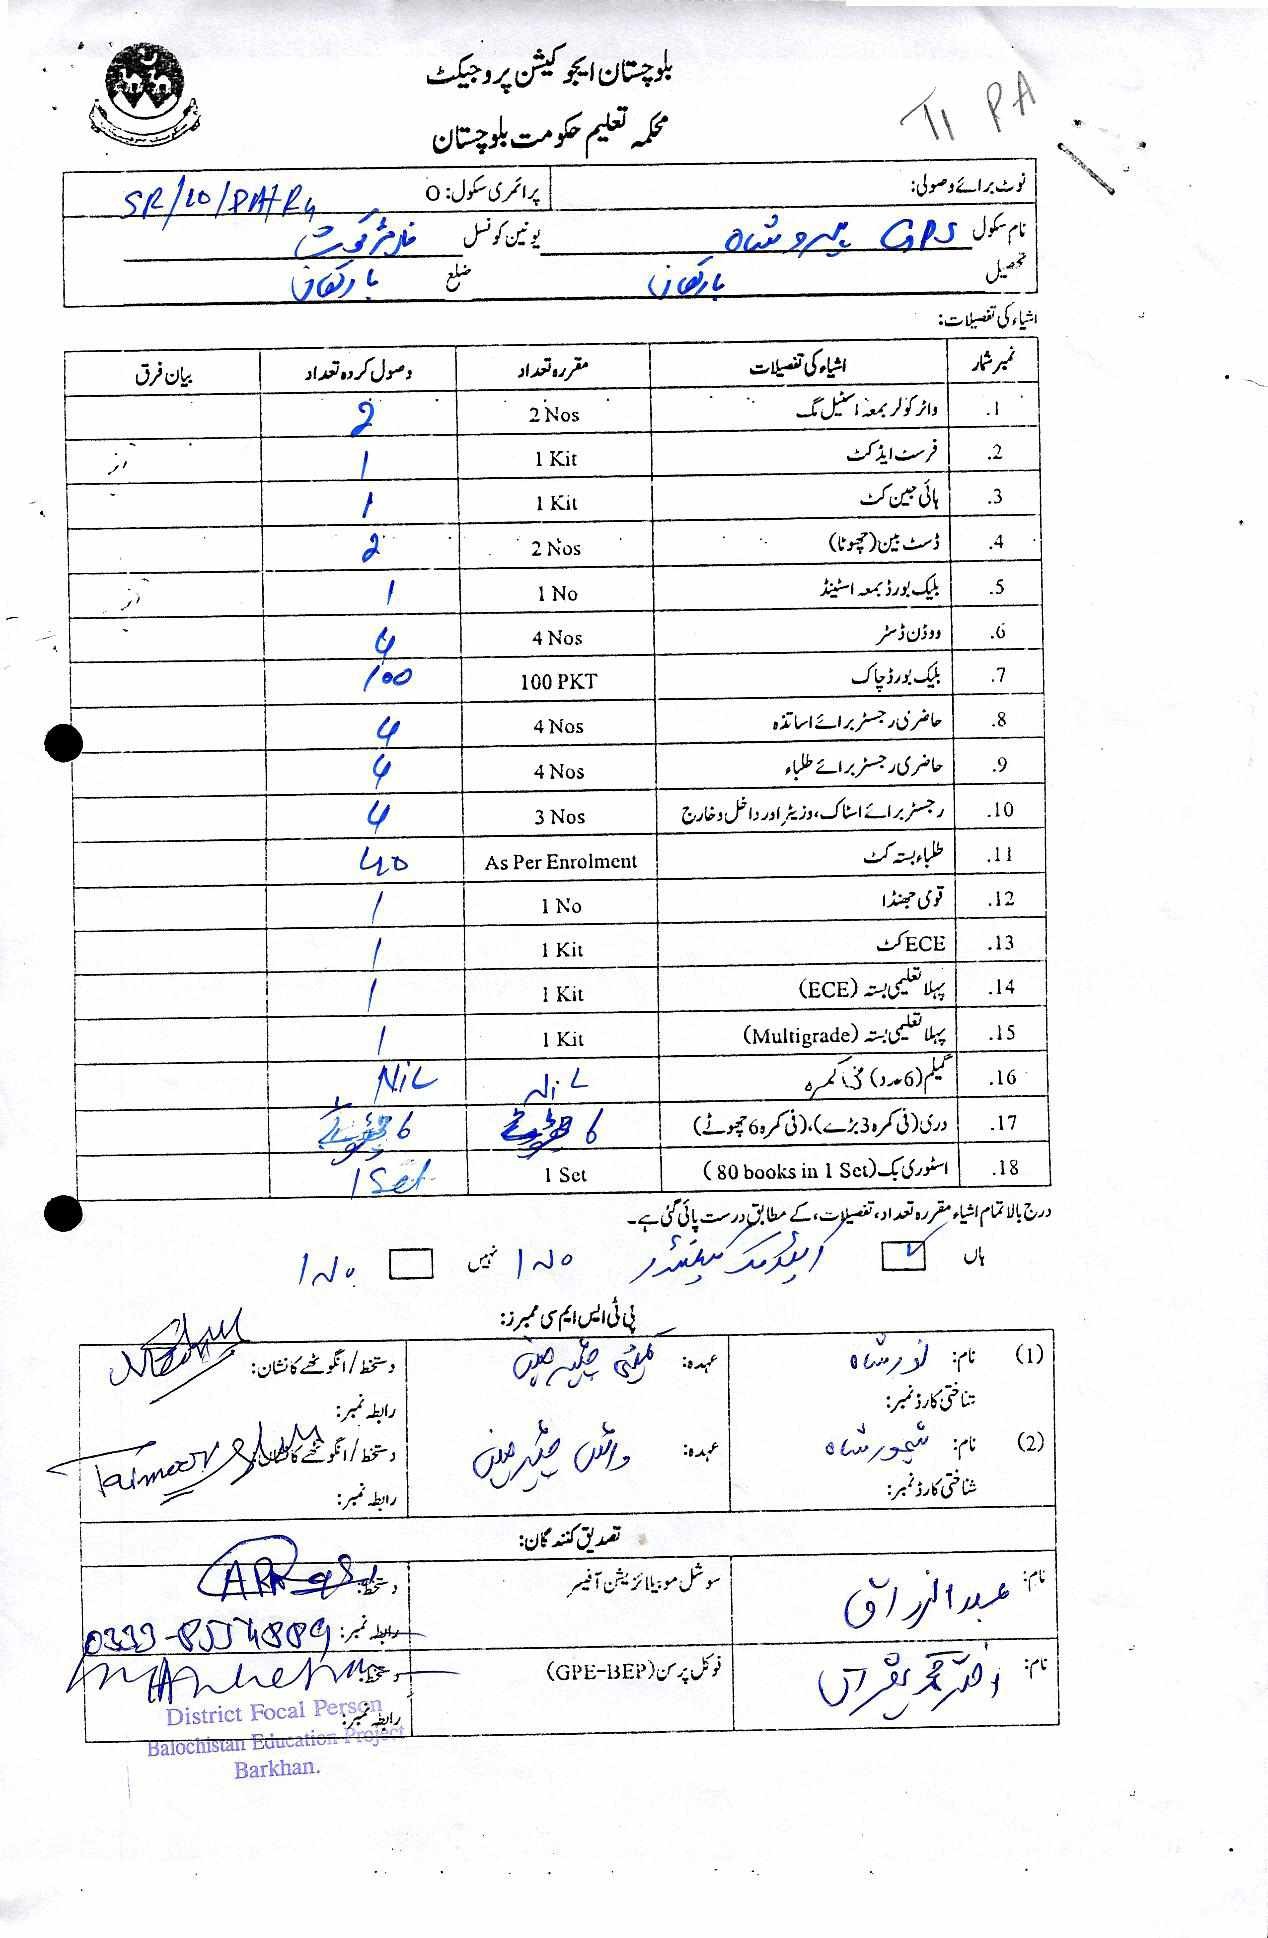 بلوچستان ایجوکیشن پروجیکٹ
محکمہ تعلیم حکومت بلوچستان
T1 PA
نوٹ برائے وصولی:
پرائمری سکول: O SR/10/PA/R4
نام سکول GPS پیرو شاہ یونین کونسل
تحصیل بارکھان ضلع بارکھان
اشیاء کی تفصیلات:
نمبر شمار اشیاء کی تفصیلات مقررہ تعداد وصول کردہ تعداد بیان فرق
1. واٹر کولر بمعہ اسٹیل مگ 2 Nos 2
2. فرسٹ ایڈ کٹ 1 Kit 1
3. ہائی جین کٹ 1 Kit 1
4. ڈسٹ بین (چھوٹا) 2 Nos 2
5. بلیک بورڈ بمعہ اسٹینڈ 1 No 1
6. ووڈن ڈسٹر 4 Nos 4
7. بلیک بورڈ چاک 100 PKT 100
8. حاضری رجسٹر برائے اساتذہ 4 Nos 4
9. حاضری رجسٹر برائے طلباء 4 Nos 4
10. رجسٹر برائے اسٹاک، وزیٹر اور داخل و خارج 3 Nos 4
11. طلباء بستہ کٹ As Per Enrolment 40
12. قومی جھنڈا 1 No 1
13. ECE کٹ 1 Kit 1
14. پہلا تعلیمی بستہ (ECE) 1 Kit 1
15. پہلا تعلیمی بستہ (Multigrade) 1 Kit 1
16. گیلم (6 عدد) فی کمرہ NiL NiL
17. دری (فی کمرہ 3 بڑے)، (فی کمرہ 6 چھوٹے) 6 چھوٹے 6 چھوٹے
18. اسٹوری بک (80 books in 1 Set) 1 Set 1 Set
درج بالا تمام اشیاء مقررہ تعداد، تفصیلات، کے مطابق درست پائی گئی ہے۔
ہاں ✓ اکیڈمک کیلنڈر نہیں
پی ٹی ایس ایم سی ممبرز:
(1) نام: نور شاہ عہدہ: کمیٹی چیئرمین دستخط/انگوٹھے کا نشان:
شناختی کارڈ نمبر: رابطہ نمبر:
(2) نام: تیمور شاہ عہدہ: وائس چیئرمین دستخط/انگوٹھے کا نشان: Taimoor Shah
شناختی کارڈ نمبر: رابطہ نمبر:
تصدیق کنندگان:
نام: عبدالرزاق سوشل موبلائزیشن آفیسر دستخط:
رابطہ نمبر: 0333-8554889
نام: فوکل پرسن (GPE-BEP) دستخط:
رابطہ نمبر:
District Focal Person
Balochistan Education Project
Barkhan.